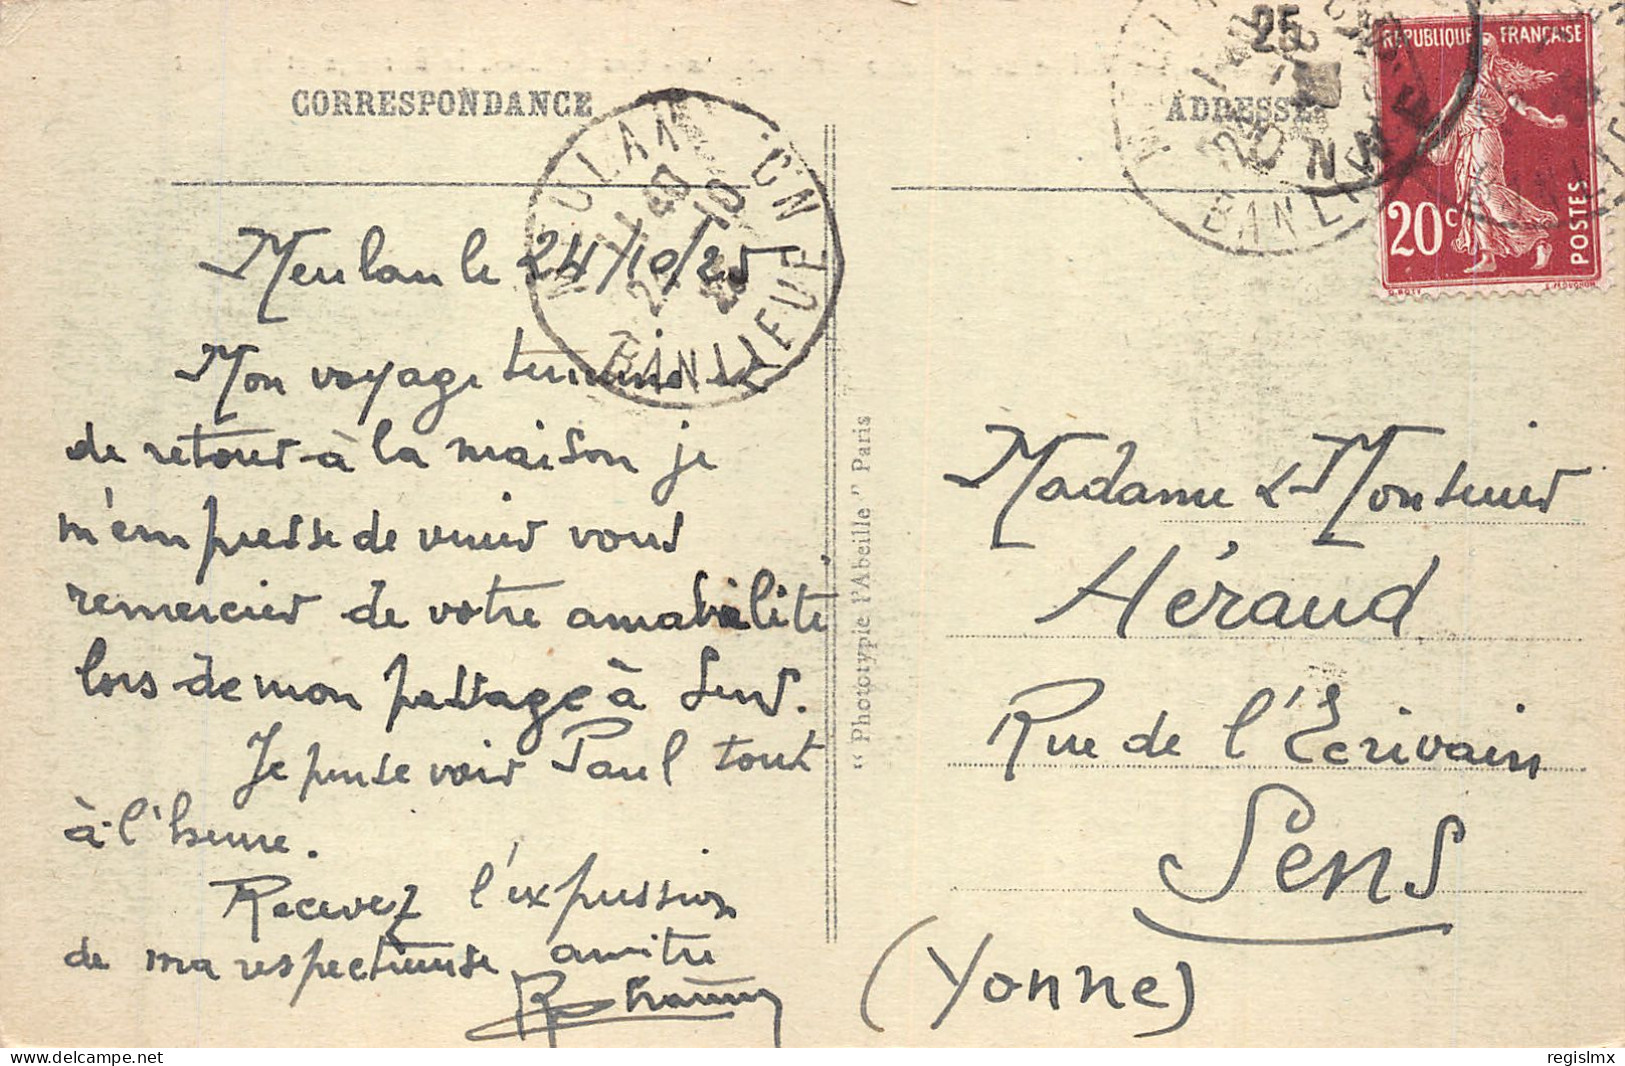 CORRESPONDANCE
ADRESSE
RÉPUBLIQUE FRANÇAISE
20c
POSTES
25
MEULAN
BANLIEUE
Meulan le 24/10/25
Mon voyage terminé et
de retour à la maison je
m'empresse de venir vous
remercier de votre amabilité
lors de mon passage à Sens.
Je pense voir Paul tout
à l'heure.
Recevez l'expression
de ma respectueuse amitié
"Photypie l'Abeille" Paris
Madame & Monsieur
Héraud
Rue de l'Écrivain
Sens
(Yonne)
regislmx
delcampe.net